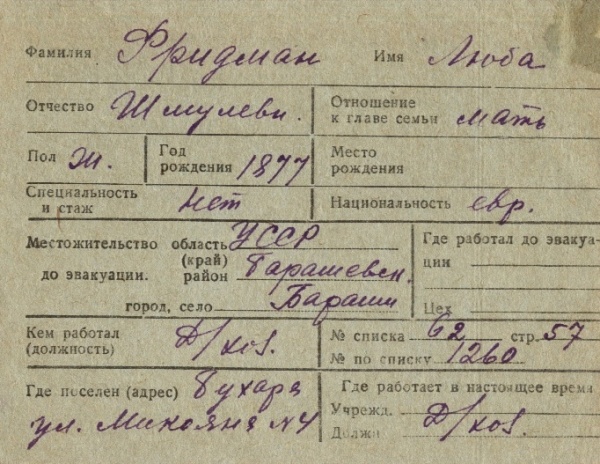 Фамилия Фридман Имя Люба
Отчество Шмулевн. Отношение к главе семьи мать
Пол ж. Год рождения 1877 Место рождения
Специальность и стаж нет Национальность евр.
Местожительство область УССР Где работал до эвакуа-
(край) ции
до эвакуации. район Барашевск.
город, село Бараши Цех
Кем работал (должность) Д/хоз. № списка 62 стр. 57
№ по списку 1260
Где поселен (адрес) Бухара Где работает в настоящее время
ул. Микояна №4 Учрежд.
Должн Д/хоз.